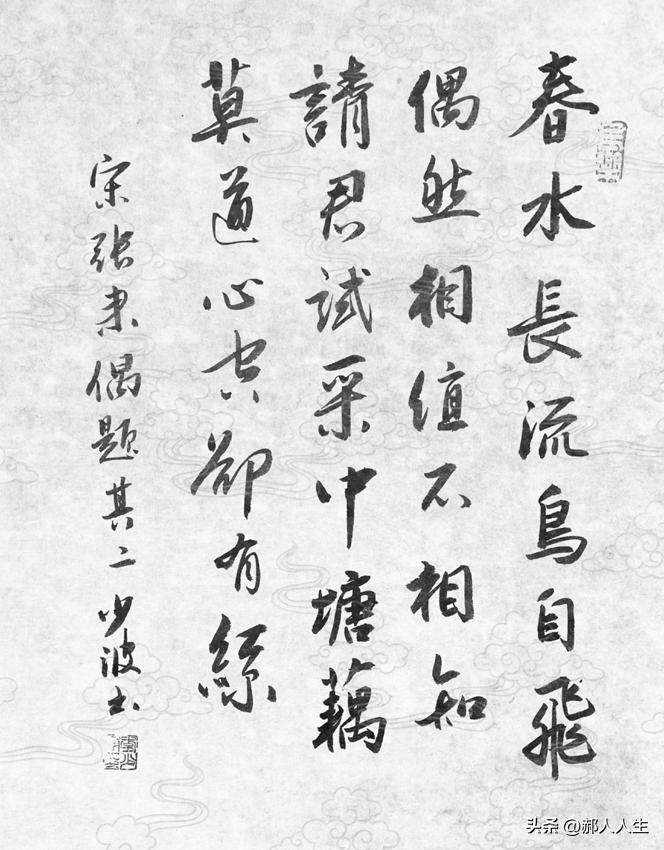 春水長流鳥自飛
偶然相值不相知
請君試采中塘藕
莫道心空卻有絲
宋張耒偶題其二 少波书
头条 @郝人人生